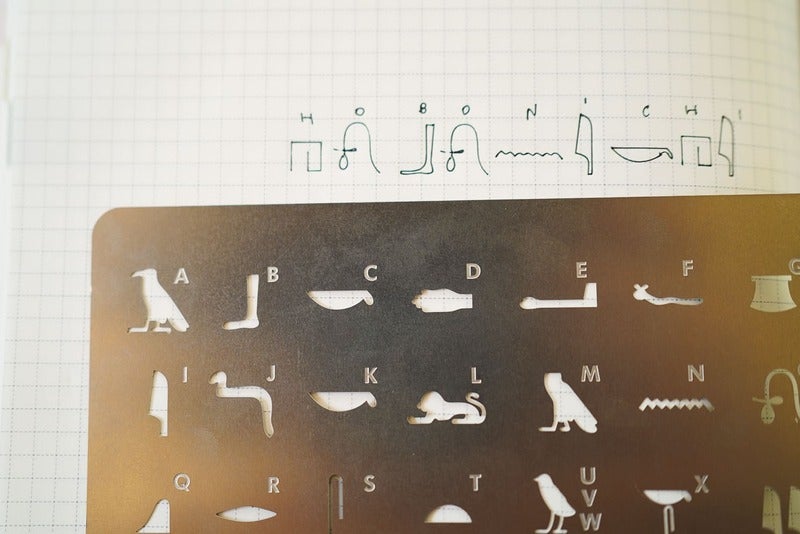 H O B O N I C H I
A B C D E F G
I J K L M N
Q R S T U V W X